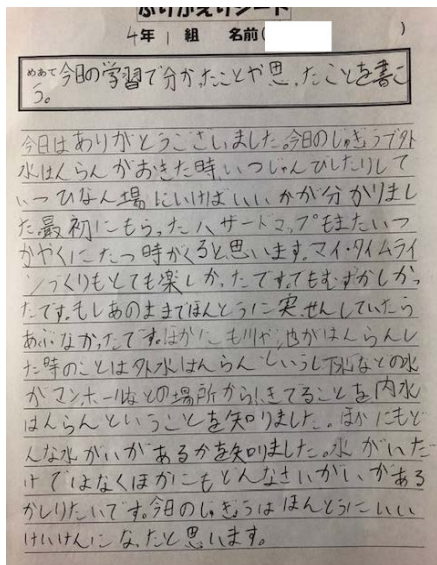 ふりかえりシート
4年 1 組 名前( )
めあて 今日の学習で分かったことや思ったことを書こ
う。
今日はありがとうございました。今日のじゅぎょうで外
水はんらんがおきた時、いつじゅんびしたりして
いつひなん場にいけばいいかが分かりまし
た。最初にもらったハザードマップもまたいつ
かやくにたつ時がくると思います。マイ・タイムライ
ンづくりもとても楽しかったです。でもむずかしかっ
たです。もしあのままでほんとうに実せんしていたら
あぶなかったです。ほかにも川や池がはんらんし
た時のことは外水はんらんというし下水などの水
がマンホールなどの場所から きてることを内水
はんらんということを知りました。ほかにもど
んな水がいがあるかを知りました。水がいだ
けではなくほかにもどんなさいがいがある
かしりたいです。今日のじゅぎょうはほんとうにいい
けいけんになったと思います。